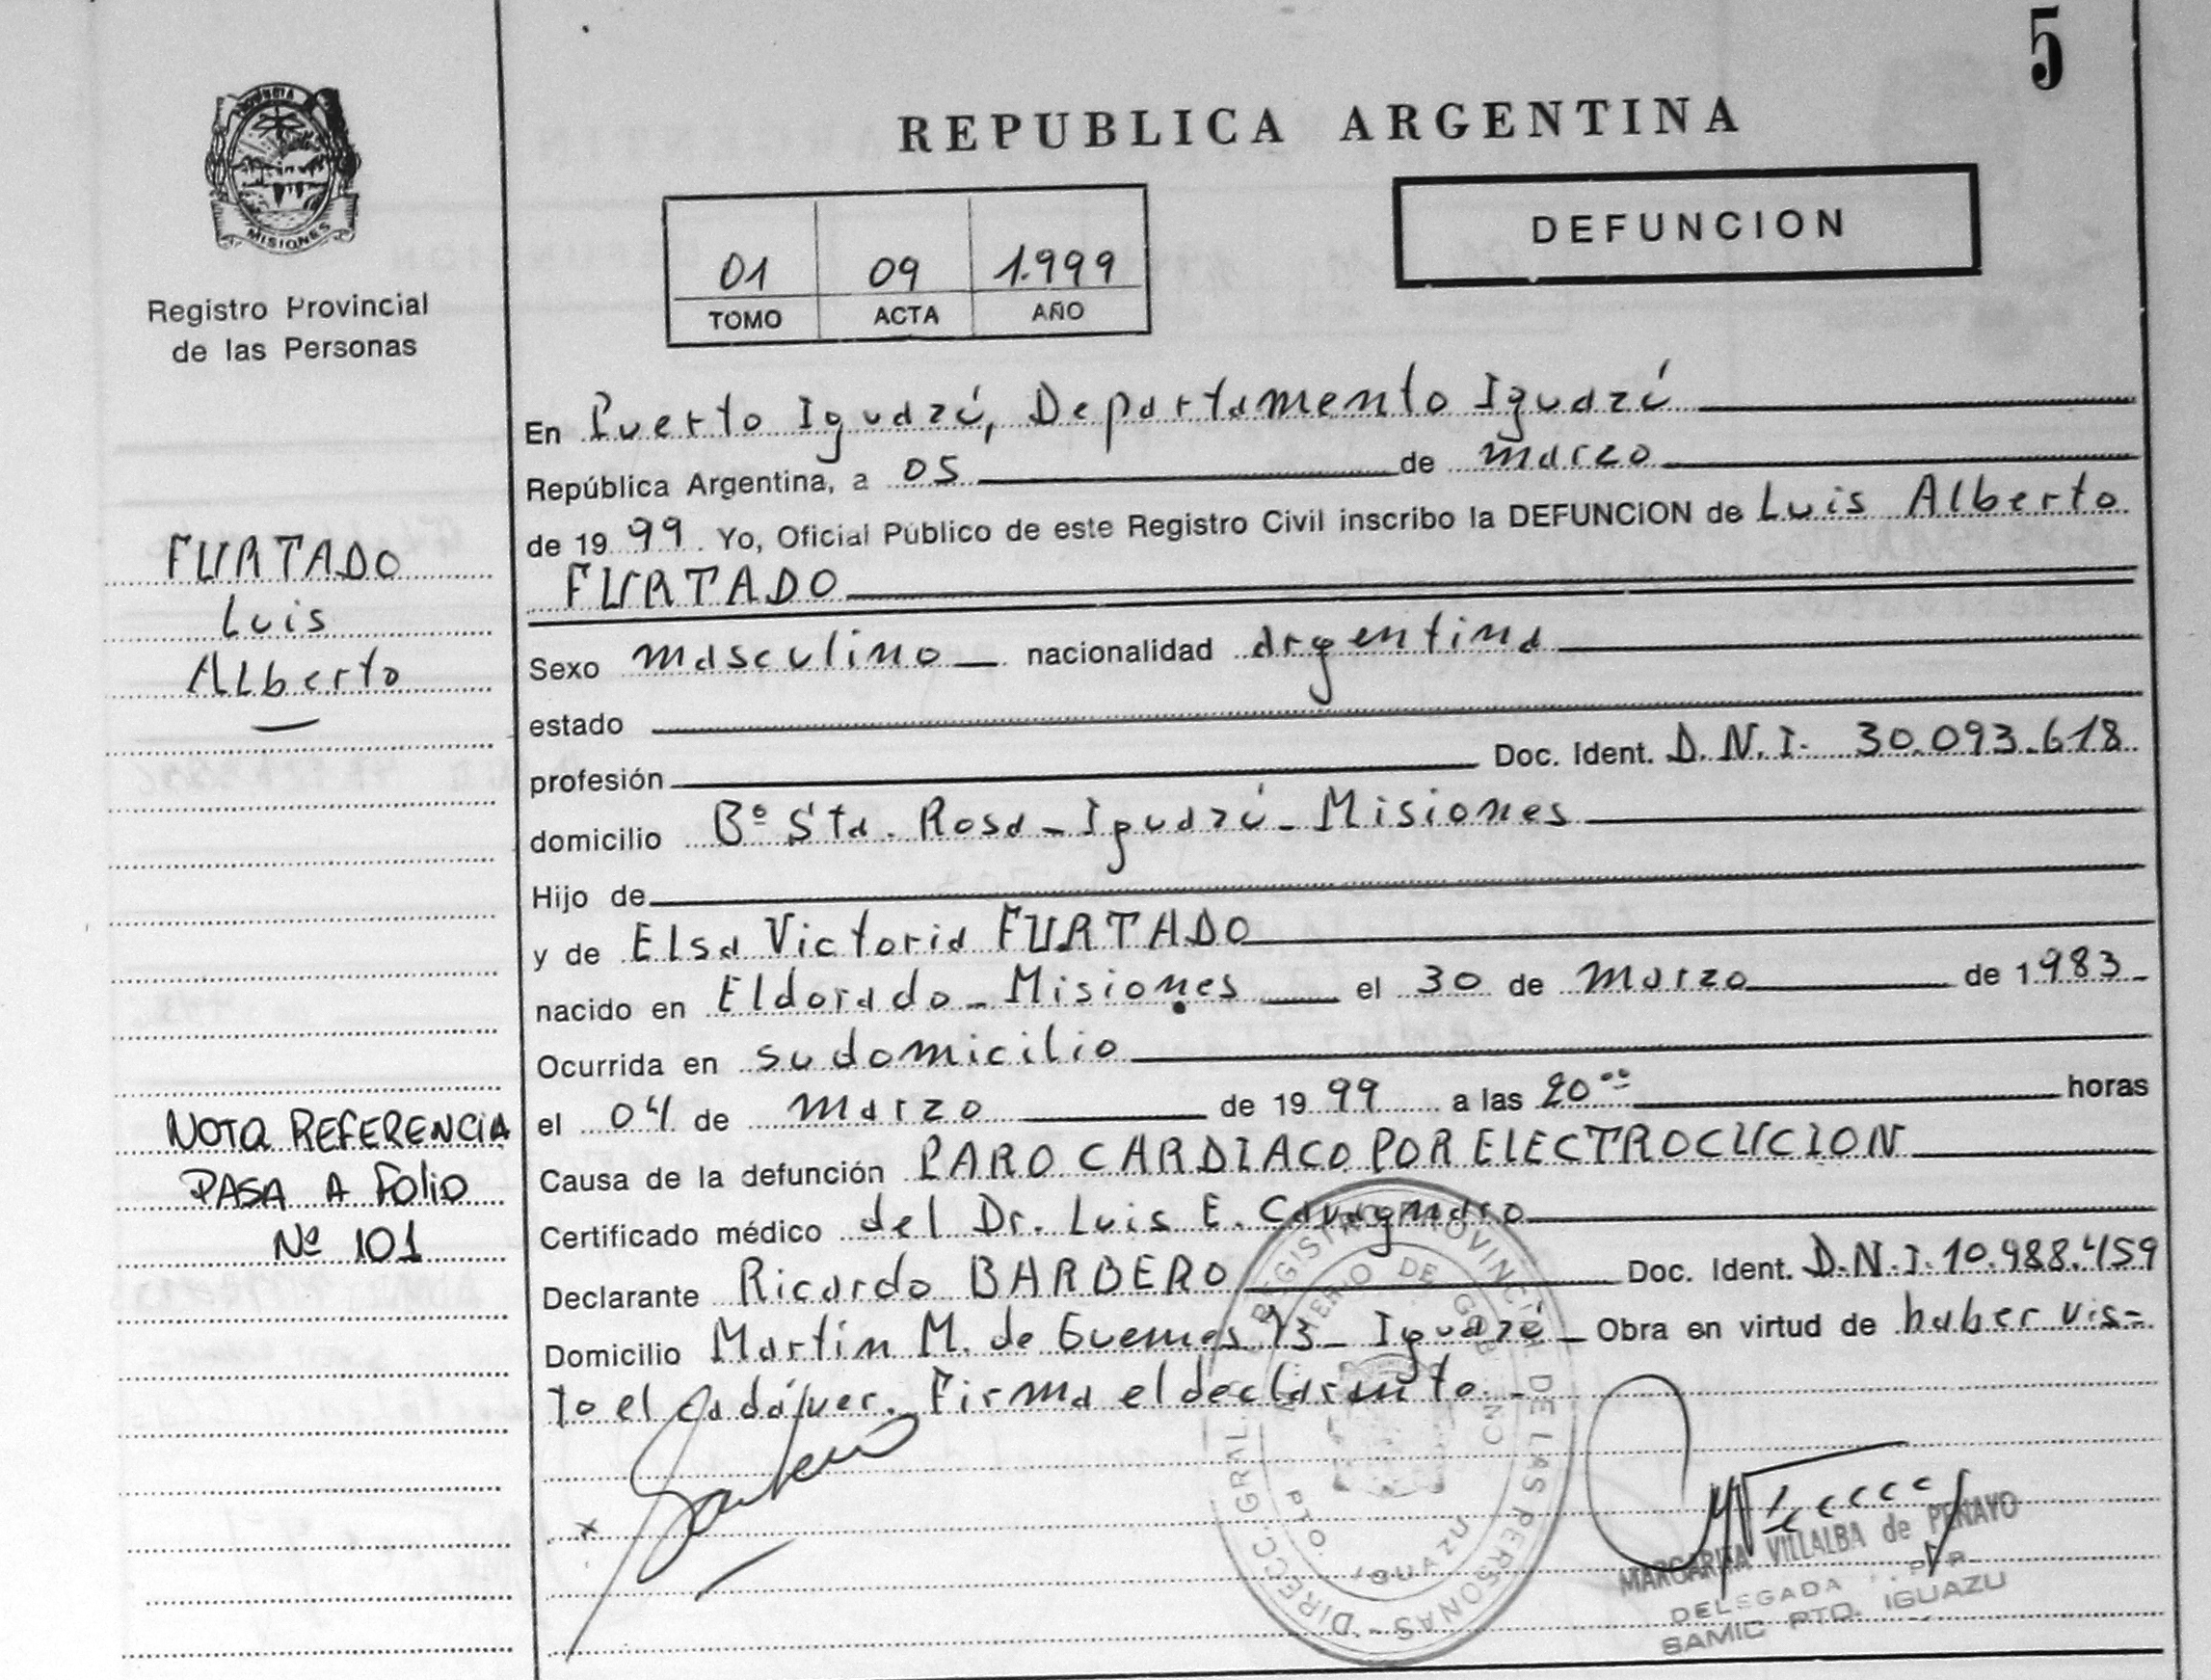 5
REPUBLICA ARGENTINA
DEFUNCION
01 09 1.999
TOMO ACTA AÑO
PROVINCIA
MISIONES
Registro Provincial
de las Personas
FURTADO
Luis
Alberto
NOTA REFERENCIA
PASA A FOLIO
Nº 101
En Puerto Iguazú, Departamento Iguazú
República Argentina, a 05 de marzo
de 19 99. Yo, Oficial Público de este Registro Civil inscribo la DEFUNCION de Luis Alberto
FURTADO
Sexo masculino nacionalidad argentina
estado
profesión Doc. Ident. D.N.I. 30.093.618
domicilio Bº Sta. Rosa - Iguazú - Misiones
Hijo de
y de Elsa Victoria FURTADO
nacido en Eldorado - Misiones el 30 de Marzo de 1983
Ocurrida en su domicilio
el 04 de marzo de 19 99 a las 20 00 horas
Causa de la defunción PARO CARDIACO POR ELECTROCUCION
Certificado médico del Dr. Luis E. Cavagnaro
Declarante Ricardo BARBERO Doc. Ident. D.N.I. 10.988.459
Domicilio Martín M. de Guemes 73 - Iguazú - Obra en virtud de haber vis=
to el cadáver. Firma el declarante.-
DIRECC. GRAL. REGISTRO PROVINCIAL DE LAS PERSONAS
MINISTERIO DE GOBIERNO
PTO. IGUAZU
MARGARITA VILLALBA de PENAYO
DELEGADA
SAMIC PTO. IGUAZU